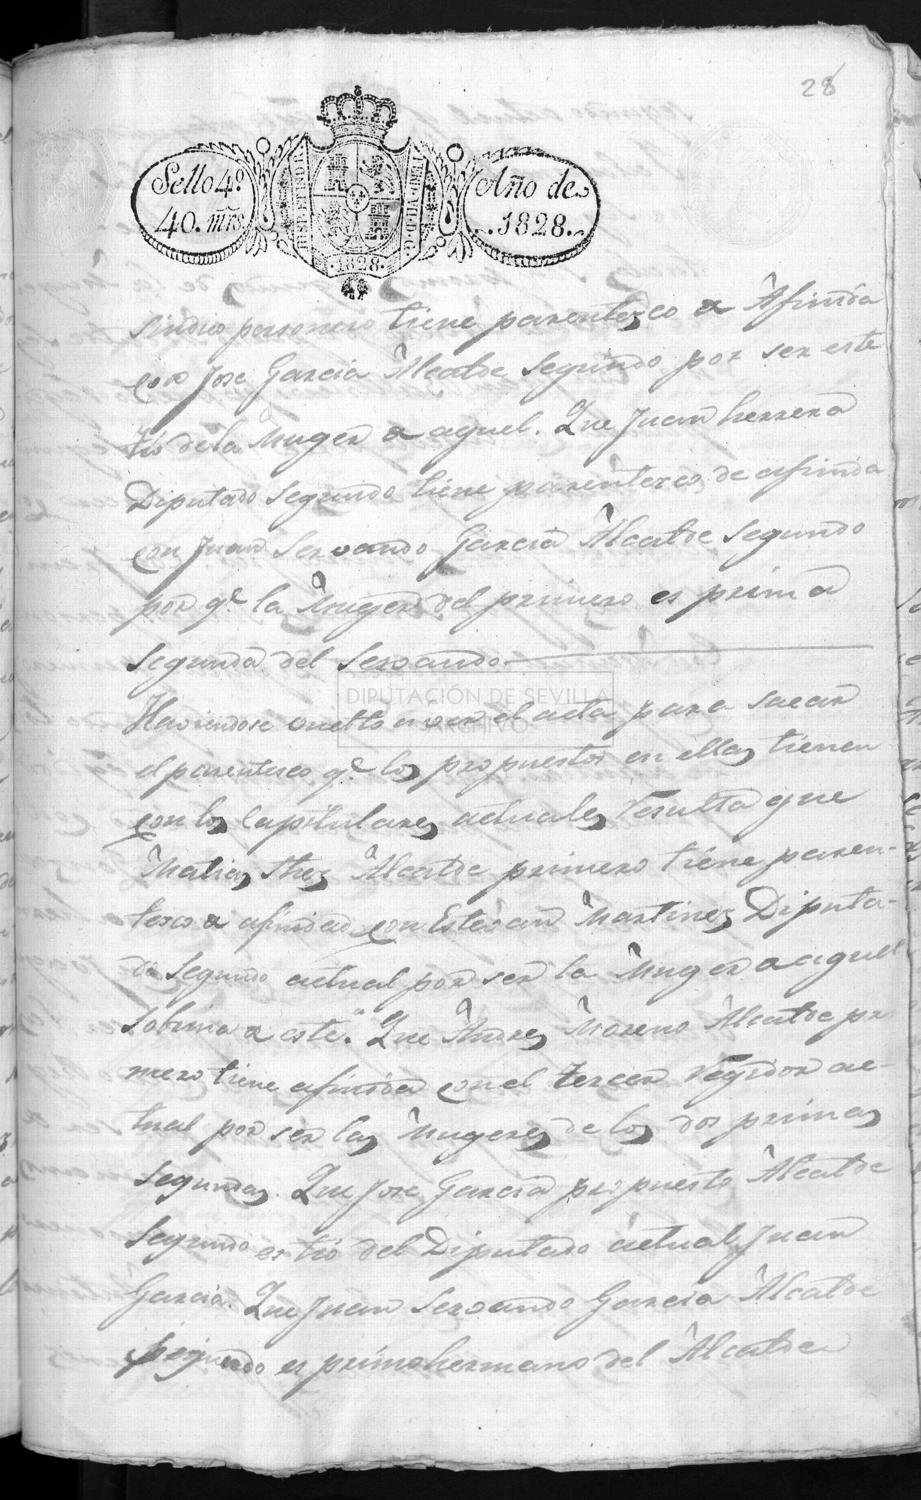 28
Sello 4º.
40. mrs
HISP. ET YND. R.
FERD. VII. D. G.
Año de
1828.
.1828.
Sindico personero tiene parentezco a Afinida
con Jose Garcia Alcalde segundo por ser este
tio de la Muger a aquel. Que Juan herrera
Diputado segundo tiene parentezco de afinida
con Juan Servando Garcia Alcalde segundo
por qe. la Muger del primero es prima
segunda del Servando
DIPUTACIÓN DE SEVILLA
ARCHIVO
Haviendose vuelto a ver el acta para sacar
el parentesco qe. los propuestos en ellas tienen
con los Capitulares actuales resulta que
Matias Shez Alcalde primero tiene paren-
tesco a afinidad con Estevan Martinez Diputa-
do segundo actual por ser la Muger a aquel
Sobrina a este. Que Andres Moreno Alcalde pri
mero tiene afinida con el tercer Regidor ac-
tual por ser las Mugeres de los dos primas
segundas. Que Jose Garcia propuesto Alcalde
Segundo es tio del Diputado actual Juan
Garcia. Que Juan Servando Garcia Alcalde
segundo es primo hermano del Alcalde